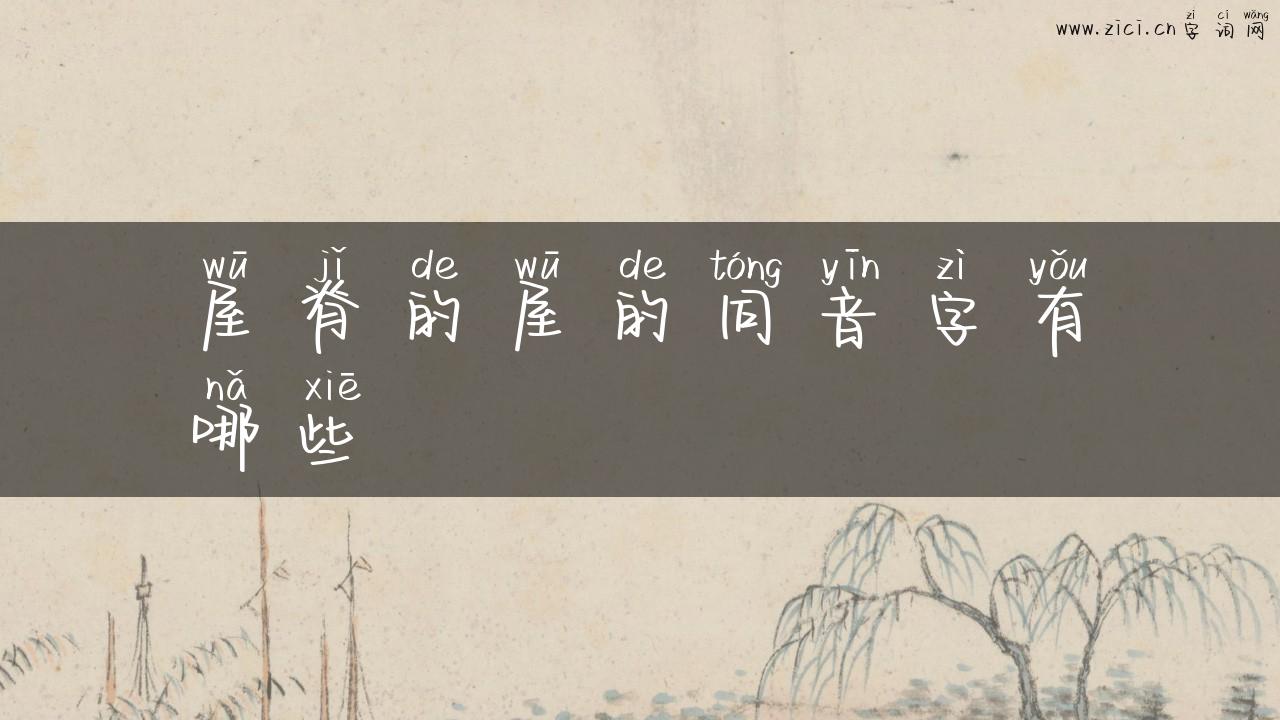 zì cí wǎng
www.zici.cn 字词网
wū jǐ de wū de tóng yīn zì yǒu
屋脊的屋的同音字有
nǎ xiē
哪些